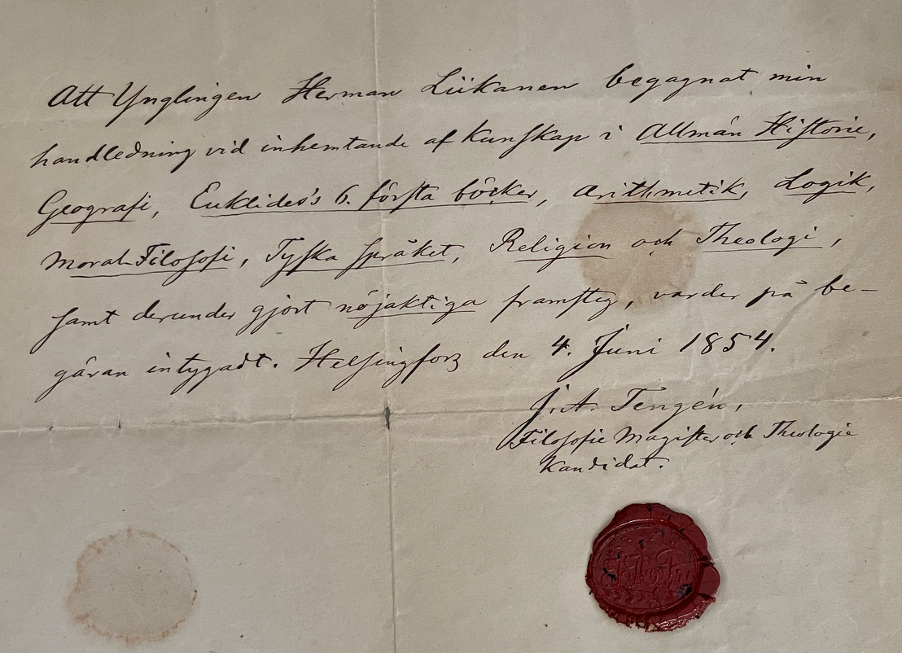 Att Ynglingen Herman Liikanen begagnat min
handledning vid inhemtande af kunskap i Allmän Historie,
Geografi, Euklides's 6. första böcker, Arithmetik, Logik,
Moral-Filosofi, Tyska språket, Religion och Theologi,
samt derunder gjort nöjaktiga framsteg, varder på be-
gäran intygadt. Helsingfors den 4. Juni 1854.
J. A. Tengén,
Filosofie Magister och Theologie
Kandidat.